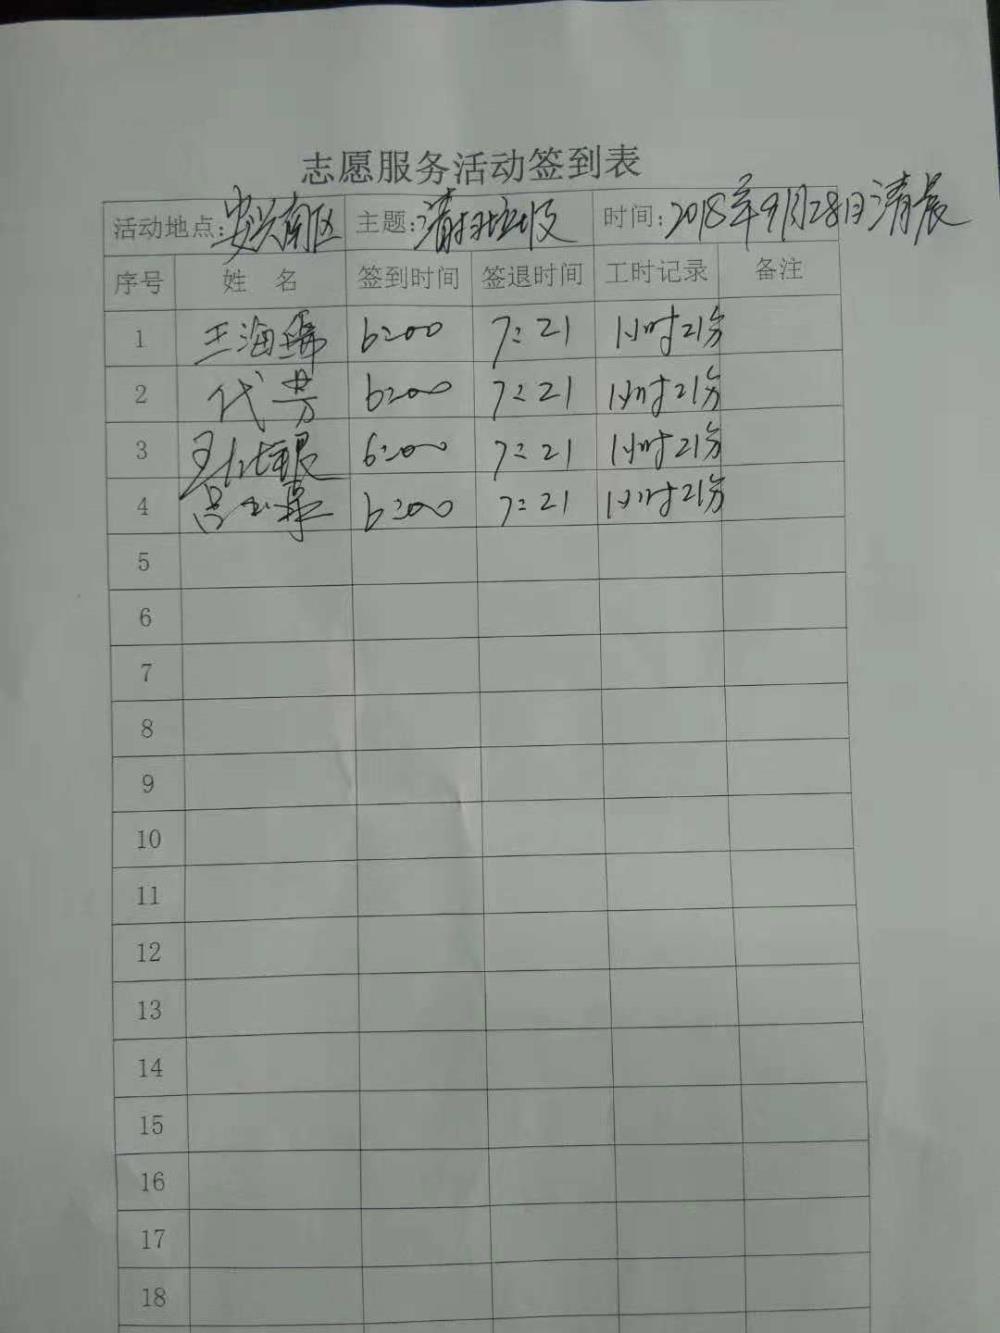 志愿服务活动签到表
活动地点:安兴南区 主题:清扫垃圾 时间:2018年9月28日清晨
序号 姓 名 签到时间 签退时间 工时记录 备注
1 王海 6:00 7:21 1小时21分
2 代芳 6:00 7:21 1小时21分
3 6:00 7:21 1小时21分
4 6:00 7:21 1小时21分
5
6
7
8
9
10
11
12
13
14
15
16
17
18